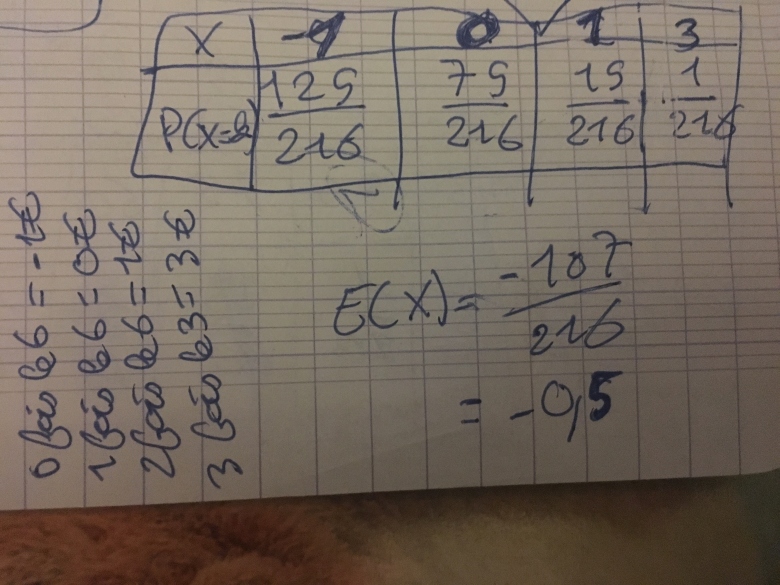 X -1 0 1 3
P(X=k) 125/216 75/216 15/216 1/216
E(X) = -107/216
= -0,5
0 fois le 6 = -1€
1 fois le 6 = 0€
2 fois le 6 = 1€
3 fois le 3 = 3€